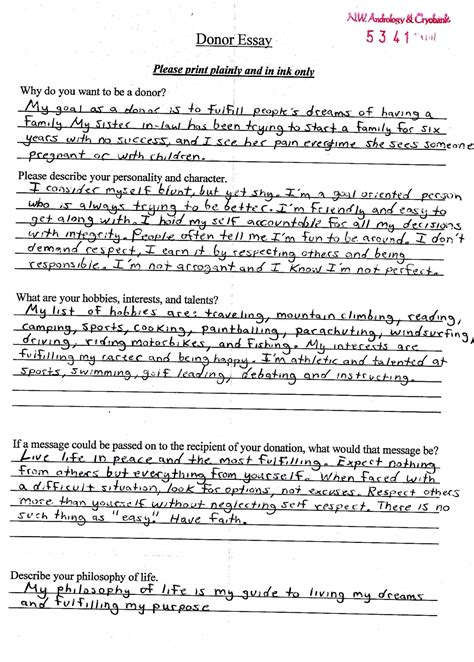 N.W. Andrology & Cryobank
5341
Donor Essay
Please print plainly and in ink only
Why do you want to be a donor?
My goal as a donor is to fulfill people's dreams of having a
family. My sister in-law has been trying to start a family for six
years with no success, and I see her pain everytime she sees someone
pregnant or with children.
Please describe your personality and character.
I consider myself blunt, but yet shy. I'm a goal oriented person
who is always trying to be better. I'm friendly and easy to
get along with. I hold my self accountable for all my decisions
with integrity. People often tell me I'm fun to be around. I don't
demand respect, I earn it by respecting others and being
responsible. I'm not arrogant and I know I'm not perfect.
What are your hobbies, interests, and talents?
My list of hobbies are: traveling, mountain climbing, reading,
camping, sports, cooking, paintballing, parachuting, windsurfing,
driving, riding motorbikes, and fishing. My interests are
fulfilling my career and being happy. I'm athletic and talented at
sports, swimming, golf leading, debating and instructing.
If a message could be passed on to the recipient of your donation, what would that message be?
Live life in peace and the most fulfilling. Expect nothing
from others but everything from yourself. When faced with
a difficult situation, look for options, not excuses. Respect others
more than yourself without neglecting self respect. There is no
such thing as "easy". Have faith.
Describe your philosophy of life.
My philosophy of life is my guide to living my dreams
and fulfilling my purpose